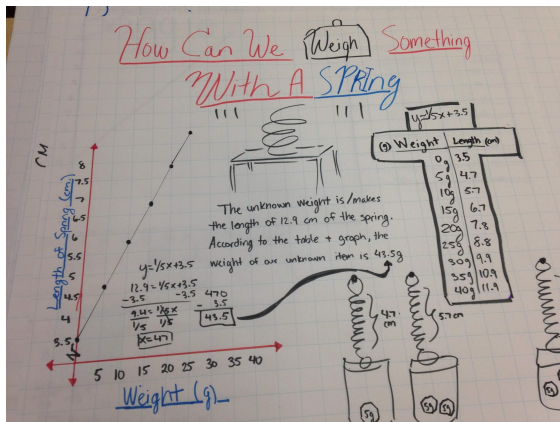 How Can We Weigh Something
With A Spring
CM
Length of Spring (cm)
8
7.5
7
6.5
6
5.5
5
4.5
4
3.5
5 10 15 20 25 30 35 40
Weight (g)
The unknown weight is/makes
the length of 12.9 cm of the spring.
According to the table + graph, the
weight of our unknown item is 43.5g
y=1/5x+3.5
12.9=1/5x+3.5
-3.5 -3.5
9.4=1/5x
1/5 1/5
x=47
470
- 3.5
43.5
y=1/5x+3.5
(g) Weight Length (cm)
0g 3.5
5g 4.7
10g 5.7
15g 6.7
20g 7.8
25g 8.8
30g 9.9
35g 10.9
40g 11.9
4.7
cm
5.7cm
5g
5g 5g